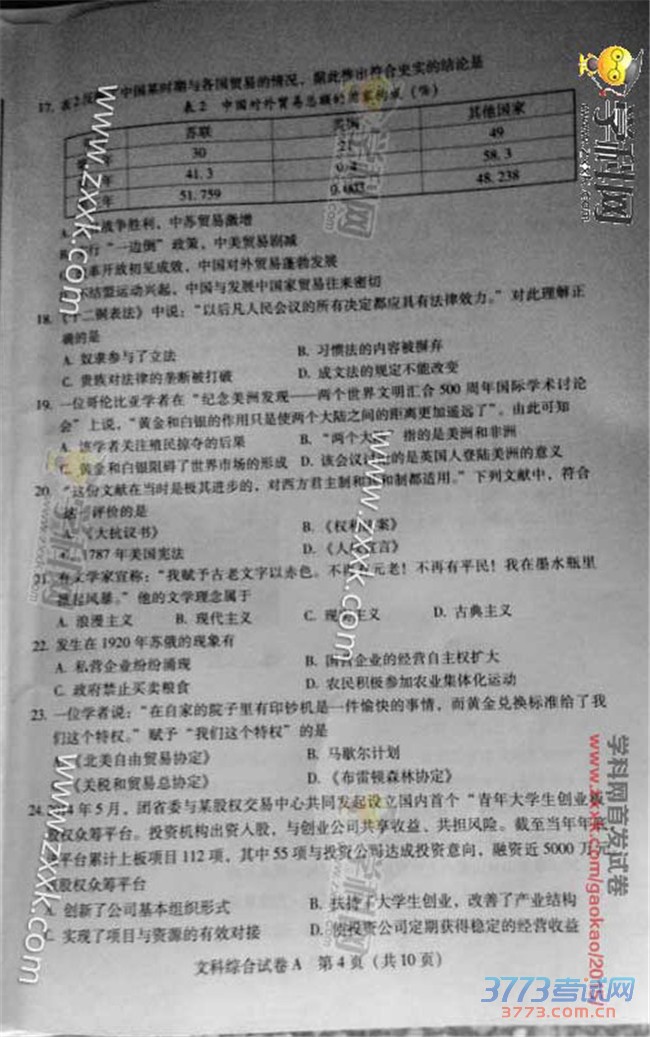 17. 表2反 中国某时期与各国贸易的情况，据此推出符合史实的结论是
表2 中国对外贸易总额的国家构成（%）
苏联 美国 其他国家
年 30 21 49
年 41.3 0.4 58.3
年 51.759 48.238
A. 战争胜利，中苏贸易激增
行“一边倒”政策，中美贸易剧减
革开放初见成效，中国对外贸易蓬勃发展
不结盟运动兴起，中国与发展中国家贸易往来密切
18. 《十二铜表法》中说：“以后凡人民会议的所有决定都应具有法律效力。”对此理解正
确的是
A. 奴隶参与了立法 B. 习惯法的内容被摒弃
C. 贵族对法律的垄断被打破 D. 成文法的规定不能改变
19. 一位哥伦比亚学者在“纪念美洲发现——两个世界文明汇合500周年国际学术讨论
会”上说，“黄金和白银的作用只是使两个大陆之间的距离更加遥远了”。由此可知
A. 该学者关注殖民掠夺的后果 B. “两个大 ”指的是美洲和非洲
C. 黄金和白银阻碍了世界市场的形成 D. 该会议讨 的是英国人登陆美洲的意义
20. “这份文献在当时是极其进步的，对西方君主制和 和制都适用。”下列文献中，符合
这一评价的是
A. 《大抗议书》 B. 《权利 案》
1787年美国宪法 D. 《人 宣言》
21. 有文学家宣称：“我赋予古老文字以赤色。不再 元老！不再有平民！我在墨水瓶里
掀起风暴。”他的文学理念属于
A. 浪漫主义 B. 现代主义 C. 现 主义 D. 古典主义
22. 发生在1920年苏俄的现象有
A. 私营企业纷纷涌现 B. 国营企业的经营自主权扩大
C. 政府禁止买卖粮食 D. 农民积极参加农业集体化运动
23. 一位学者说：“在自家的院子里有印钞机是一件愉快的事情，而黄金兑换标准给了我
们这个特权。”赋予“我们这个特权”的是
A. 《北美自由贸易协定》 B. 马歇尔计划
《关税和贸易总协定》 D. 《布雷顿森林协定》
24. 4年5月，团省委与某股权交易中心共同发起设立国内首个“青年大学生创业板”
股权众筹平台。投资机构出资入股，与创业公司共享收益、共担风险。截至当年年
平台累计上板项目112项，其中55项与投资公司达成投资意向，融资近5000万元
股权众筹平台
A. 创新了公司基本组织形式 B. 扶持了大学生创业，改善了产业结构
C. 实现了项目与资源的有效对接 D. 使投资公司定期获得稳定的经营收益
文科综合试卷A 第4页（共10页）
www.zxxk.com
www.zxxk.com
www.zxxk.com
学科网
学科网
学科网首发试卷
www.zxxk.com/gaokao/2015/
3773考试网
3773.com.cn